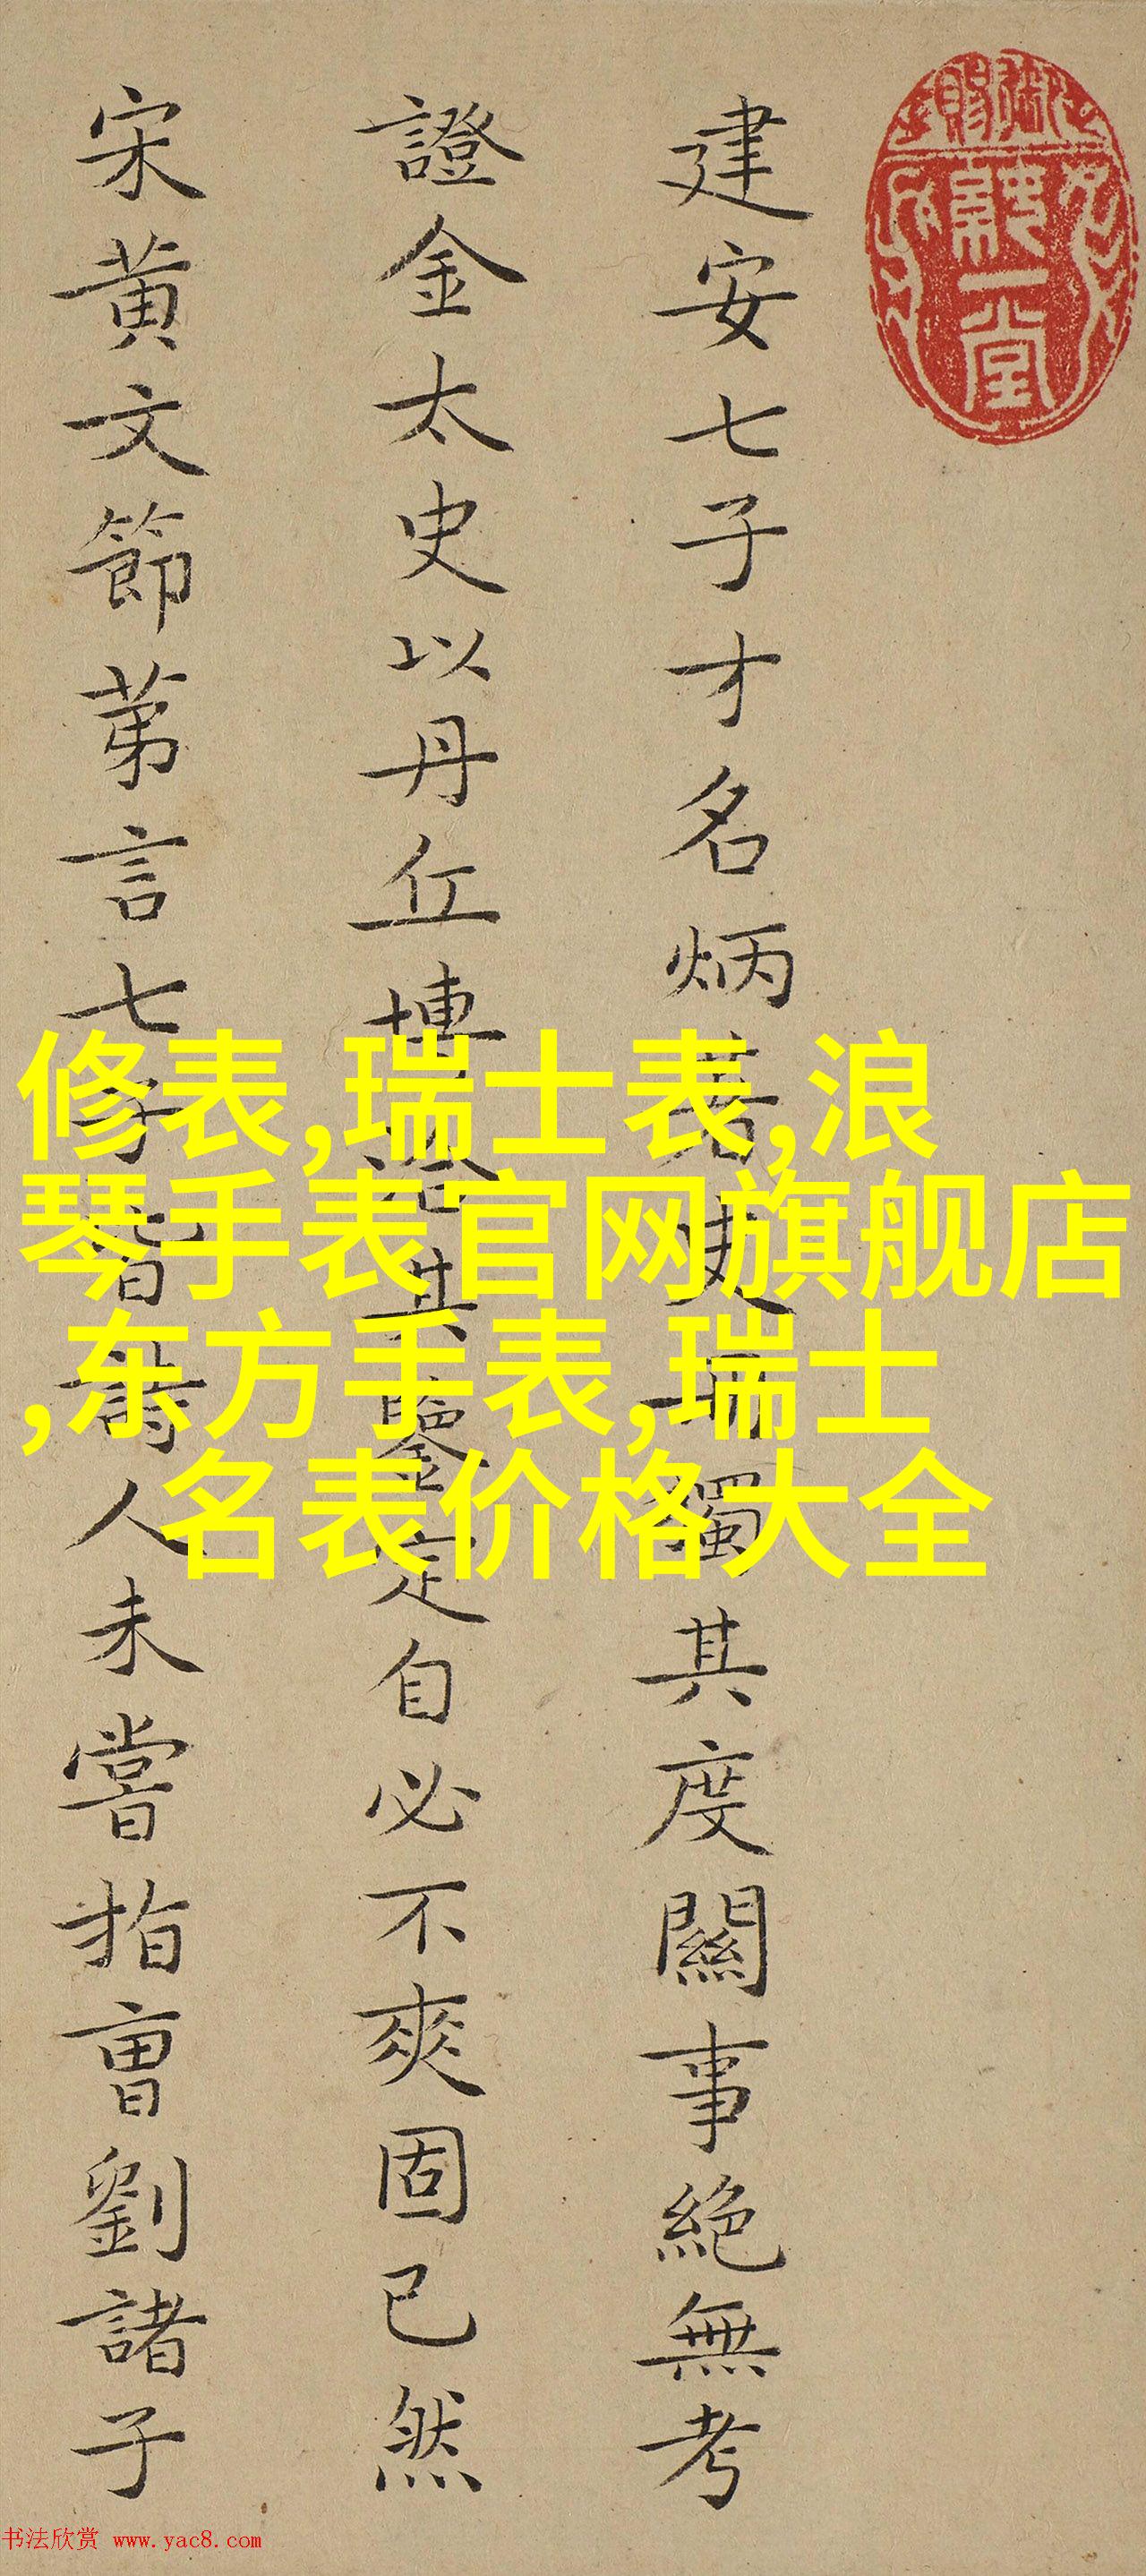 建安七子才名炳著史冊獨其度關事絕無考
證金太史以丹丘博洽其鑒定自必不爽固已然
宋黃文節苐言七子皆詩人未嘗指曹劉諸子
修表,瑞士表,浪
琴手表官网旗舰店
,东方手表,瑞士
名表价格大全
书法欣赏 www.yac8.com